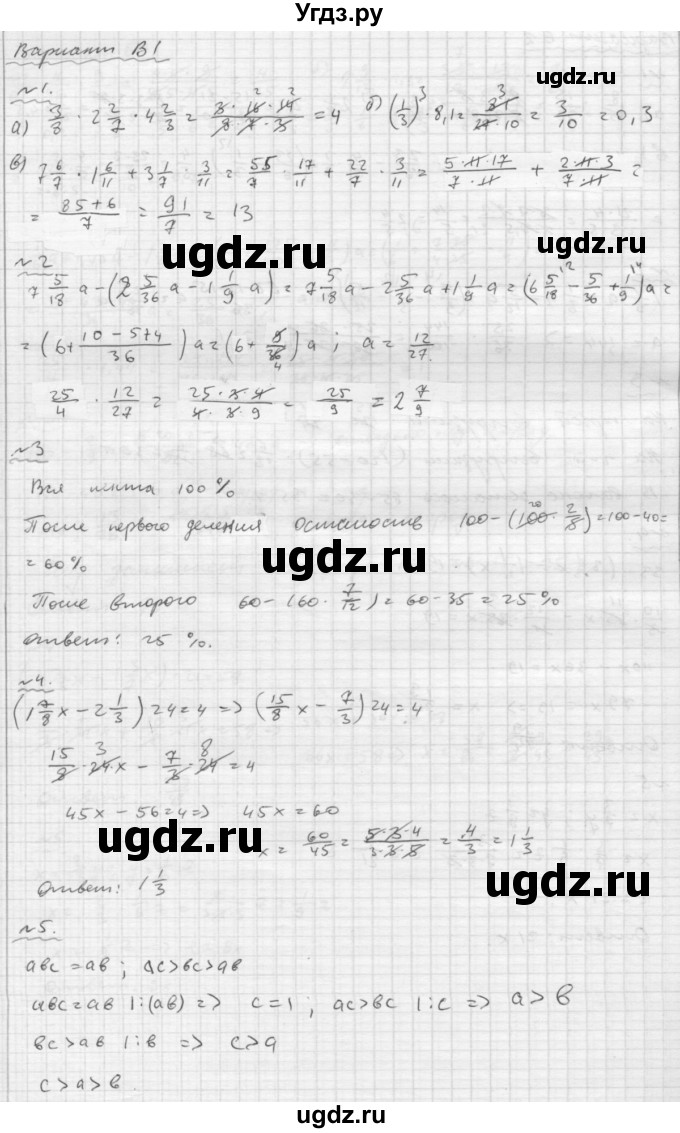 Угдз.ру
Вариант В1
№1.
а) 3/8 · 2 2/7 · 4 2/3 = 3·16·14/8·7·3 = 4 б) (1/3)³ · 8,1 = 81/27·10 = 3/10 = 0,3
в) 7 6/7 · 1 6/11 + 3 1/7 · 3/11 = 55/7 · 17/11 + 22/7 · 3/11 = 5·11·17/7·11 + 2·11·3/7·11 =
= 85+6/7 = 91/7 = 13
ugdz.ru ugdz.ru
№2
7 5/18 a - (2 5/36 a - 1 1/9 a) = 7 5/18 a - 2 5/36 a + 1 1/9 a = (6 5/18 - 5/36 + 1/9) a =
= (6 + 10-5+4/36) a = (6 + 9/36) a; a = 12/27
25/4 · 12/27 = 25·3·4/4·3·9 = 25/9 = 2 7/9
№3
Вся лента 100%
ugdz.ru ugdz.ru
После первого деления осталось 100 - (100 · 2/5) = 100-40=
= 60%
После второго 60 - (60 · 7/12) = 60 - 35 = 25%
Ответ: 25 %.
№4.
(1 7/8 x - 2 1/3) 24 = 4 => (15/8 x - 7/3) 24 = 4
15/8 · 24 · x - 7/3 · 24 = 4
45x - 56 = 4 => 45x = 60
ugdz.ru
x = 60/45 = 5·3·4/3·3·5 = 4/3 = 1 1/3
ugdz.ru
Ответ: 1 1/3
№5.
abc = ab; ac > bc > ab
abc = ab |:(ab) => c = 1; ac > bc |:c => a > b
bc > ab |:b => c > a
c > a > b
ugdz.ru